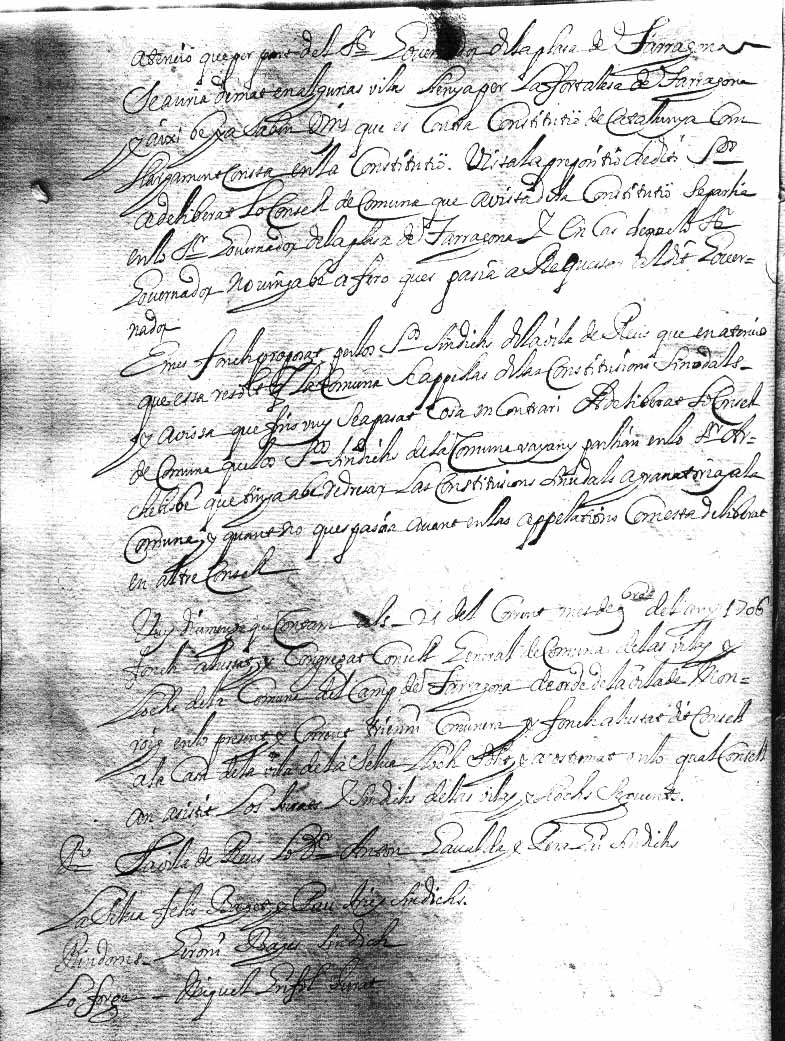 atencio que per part del Sr Governador de la plasa de Tarragona
Se auria demat en algunas vilas llenya per la fortalesa de Tarragona
y aixi be ja saben Vms que es Contra Constitutio de Catalunya Com
llargament Consta en la Constitutio. Vista la propositio de dits Srs
a deliberat lo Consell de Comuna que a vista de la Constitutio Se parlia
en lo Sr Governador de la plasa de Tarragona y en Cas de que lo Sr
Governador no vinga be a fero ques pasia a Requesta al dit Gover=
nador
E mes fonch proposat per los Srs Sindichs de la vila de Reus que en atencio
que essa resolt la Comuna Se appellas de las Constitusions Sinodals
y a vissa que fins vuy Se a pasat Cosa en Contrari A deliberat lo Consell
de Comuna que los Srs Sindichs de la Comuna vayan y parlian en lo Sr Ar=
chebisbe que tinga a be de dresar las Constitusions Sinodals a la
Comuna, y quant no que pasia avant en las appelations Com esta deliberat
en altre Consell
Vuy diumenge que Contam als 21 del Corrent mes de 9bre del any 1706
fonch ajustat, y Congregat Consell General de Comuna de las vilas y
llochs de la Comuna del Camp de Tarragona de orde de la vila de Mon=
roig en lo present y Corrent trienni Comunera y fonch ajustat dit Consell
a la Casa de la vila de la Selva lloch solit y acostumat en lo qual Consell
an asistit los Jurats y Sindichs de las vilas y llochs Seguents.
La vila de Reus lo Dr Anton Gavalda y Pera Sindichs
La Selva Felis y Pau Sindichs.
Riudoms Geroni Sindich
Lo forga Miquel Jurat